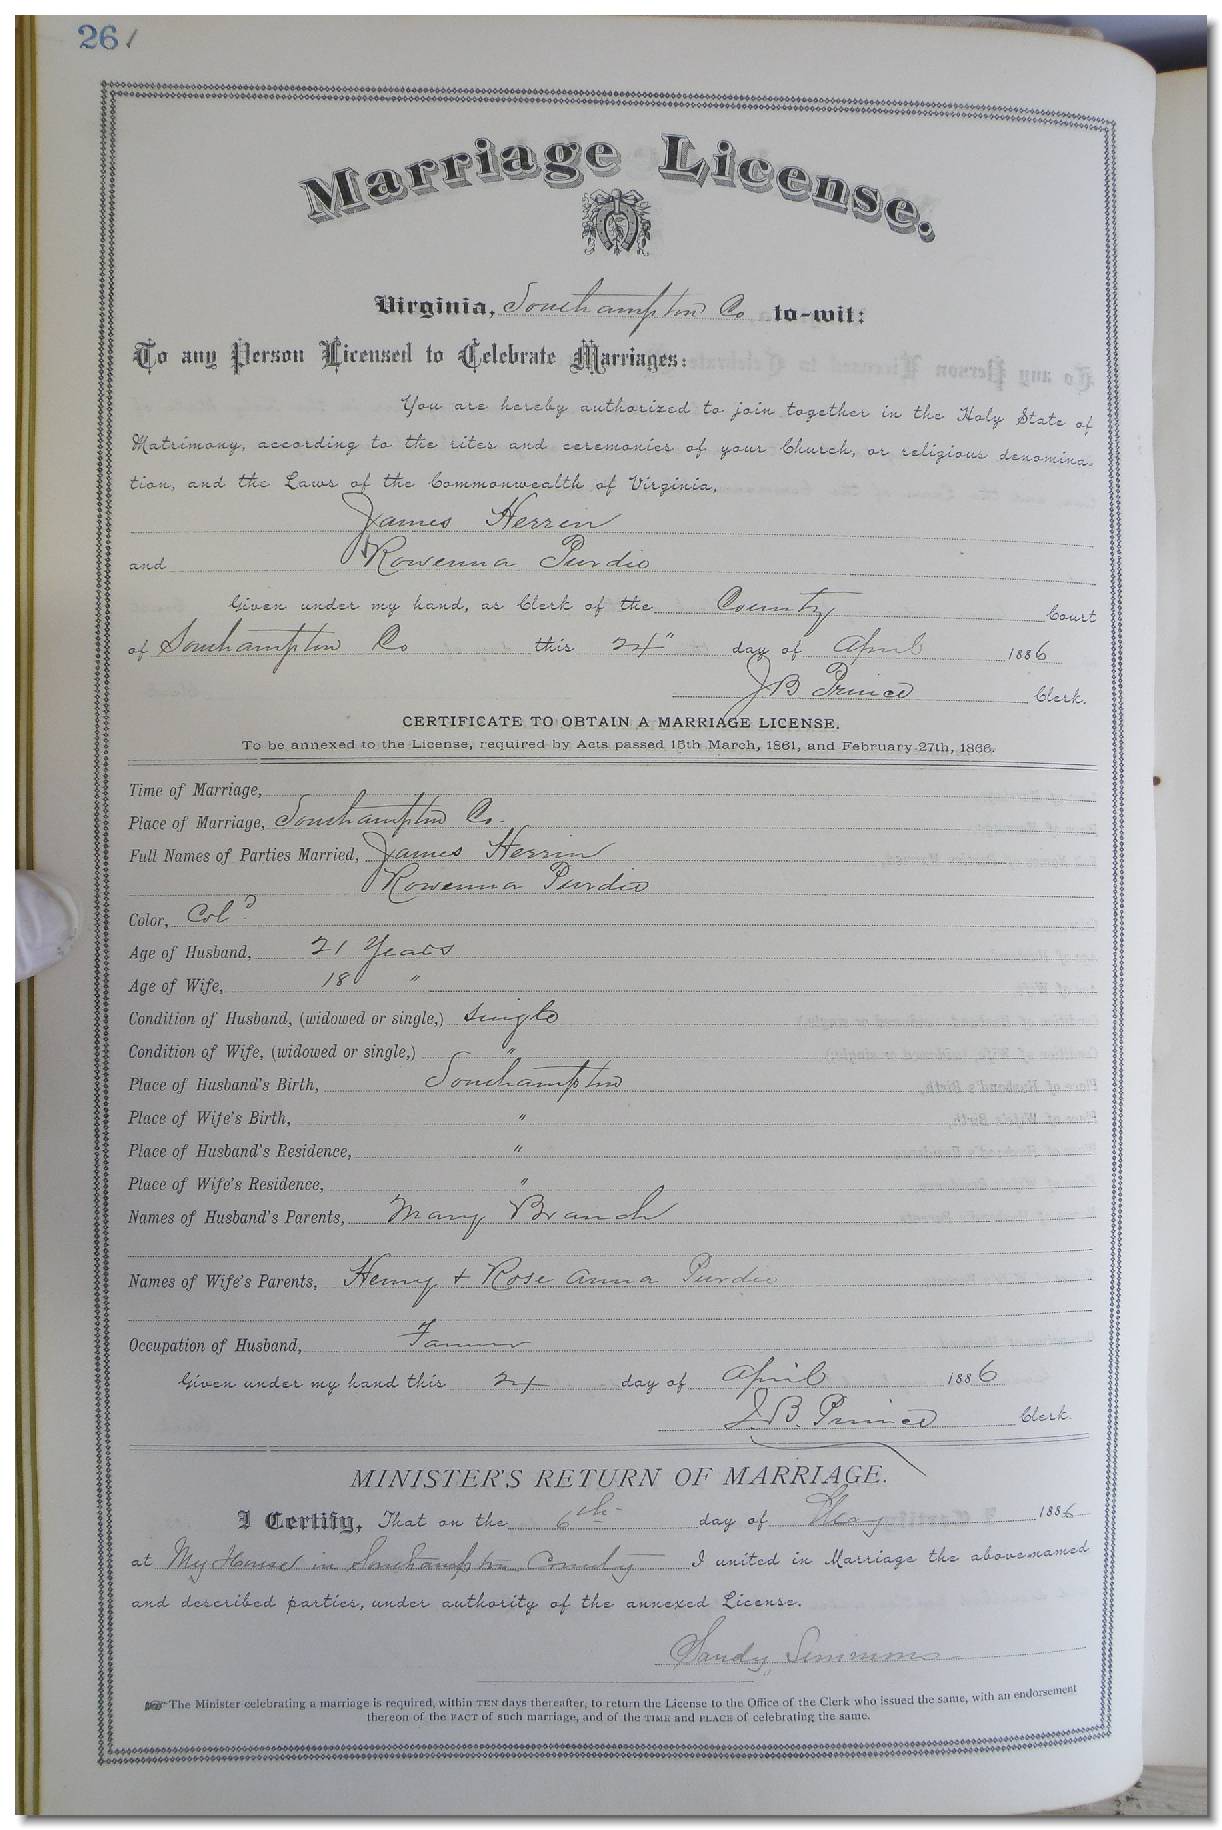 261
Marriage License.
Virginia, Southampton Co to-wit:
To any Person Licensed to Celebrate Marriages:
You are hereby authorized to join together in the Holy State of
Matrimony, according to the rites and ceremonies of your Church, or religious denomina-
tion, and the Laws of the Commonwealth of Virginia,
James Herrin
and Rowenna Purdie
Given under my hand, as Clerk of the County Court
of Southampton Co this 24" day of April 1886
J B Prince Clerk.
CERTIFICATE TO OBTAIN A MARRIAGE LICENSE.
To be annexed to the License, required by Acts passed 15th March, 1861, and February 27th, 1866.
Time of Marriage,
Place of Marriage, Southampton Co.
Full Names of Parties Married, James Herrin
Rowenna Purdie
Color, Cold
Age of Husband, 21 Years
Age of Wife, 18 "
Condition of Husband, (widowed or single,) Single
Condition of Wife, (widowed or single,) "
Place of Husband's Birth, Southampton
Place of Wife's Birth, "
Place of Husband's Residence, "
Place of Wife's Residence, "
Names of Husband's Parents, Mary Branch
Names of Wife's Parents, Henry + Rose Anna Purdie
Occupation of Husband, Farmer
Given under my hand this 24 day of April 1886
J. B. Prince Clerk.
MINISTER'S RETURN OF MARRIAGE.
I Certify, That on the 6th day of May 1886
at My House in Southampton County I united in Marriage the above-named
and described parties, under authority of the annexed License.
Sandy Simmons
The Minister celebrating a marriage is required, within TEN days thereafter, to return the License to the Office of the Clerk who issued the same, with an endorsement
thereon of the FACT of such marriage, and of the TIME and PLACE of celebrating the same.